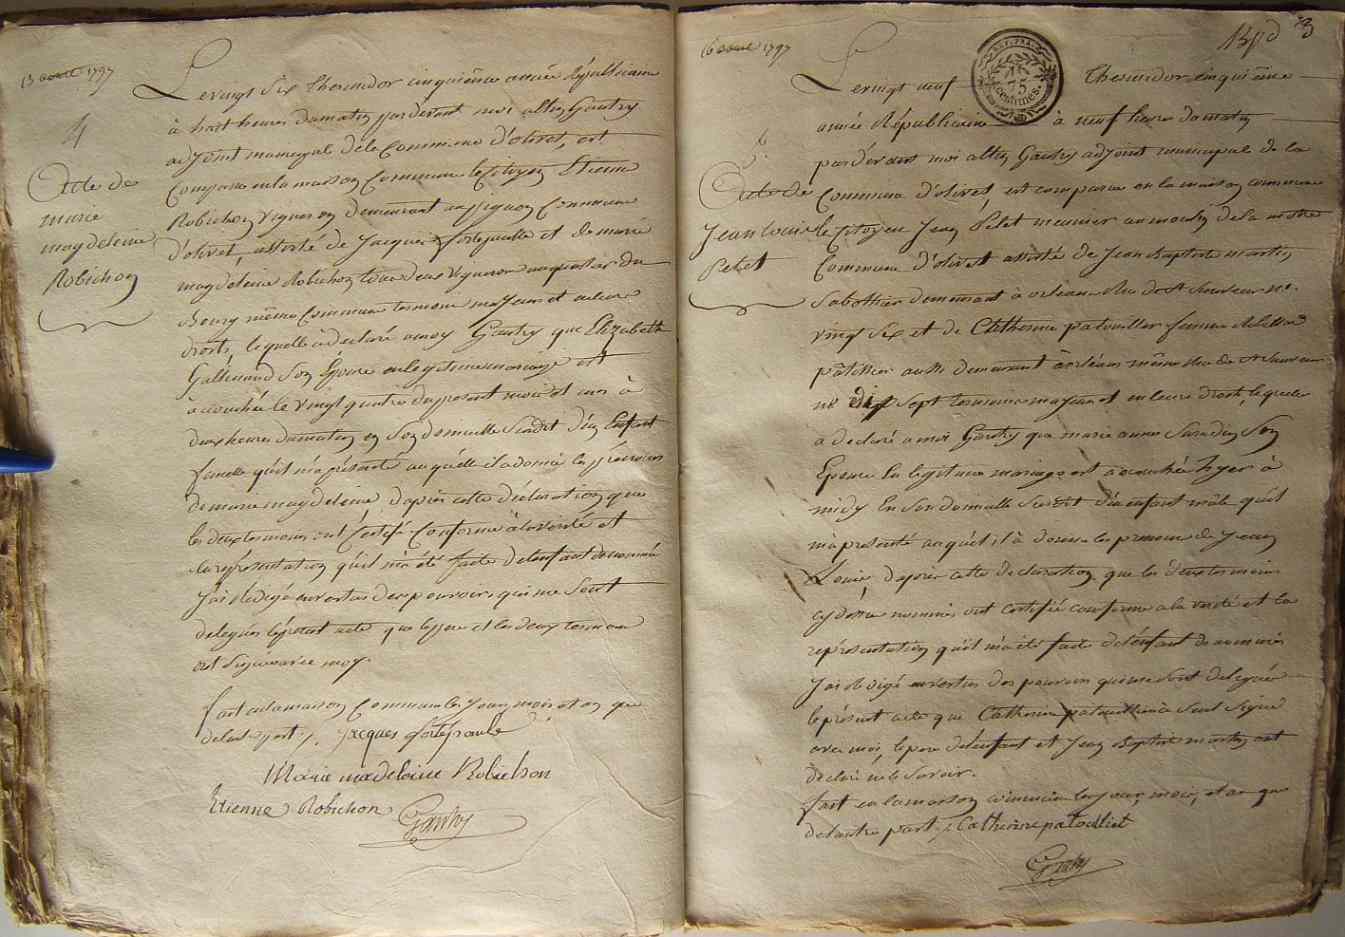 13 aout 1797
4
Acte de
marie
magdeleine
Robichon
Le vingt Six thermidor cinquième année Républicaine
à huit heures du matin par devant moi altin Gautry
adjoint municipal de la Commune d'olivet, est
Comparu en la maison Commune le Citoyen Etienne
Robichon vigneron demeurant au Commune
d'olivet, assisté de Jacques et de marie
magdeleine Robichon tous deux vigneron au quartier du
Bourg même Commune temoins majeurs et en leurs
droits, lequelle a declaré a moy Gautry que Elizabeth
Gallerand Son Epouse en legitime mariage est
accouchée le vingt quatre du present mois et an à
deux heures du matin en Son domicille Susdit d'un Enfant
femelle qu'il m'a présenté au quelle il a donné les prenoms
de marie magdeleine, d'après cette déclaration que
les deux temoins ont Certifié Conforme à la vérité et
la représentation qu'il m'a été faite de l'enfant denommé
J'ai rédigé en vertu des pouvoirs qui me Sont
delegués le présent acte que le père et les deux temoins
ont Signé avec moy.
fait en la maison Commune les Jour, mois et an que
de l'autre part ./. Jacques
Marie madeleine Robichon
Etienne Robichon Gautry
16 aout 1797
3
5
Acte de
Jean louis
Petet
75
centimes
Le vingt neuf thermidor cinquième
année Républicaine à neuf heures du matin
par devant moi altin Gautry adjoint municipal de la
Commune d'olivet, est comparu en la maison commune
le Citoyen Jean Petet meunier au moulin de la motte
Commune d'olivet assisté de Jean Baptiste martin
Sabottier demeurant à orléans Rue de St Sauveur no.
vingt Six et de Catherine patouillet femme
pâtissier aussi demeurant à orléans même Rue de St Sauveur
no dix Sept temoins majeurs et en leurs droits, lequel
a declaré a moi Gautry que marie anne Son
Epouse en legitime mariage est accouchée hyer à
midy En Son domicille Susdit d'un enfant mâle qu'il
m'a présenté au quel il à donné les prenoms de Jean
Louis, d'après cette declaration que les deux temoins
cy dessus nommés ont certifié conforme a la verité et la
représentation qu'il m'a été faite de l'enfant denommé
J'ai rédigé en vertu des pouvoirs qui me Sont delegués
le présent acte que Catherine patouillet a Seul Signé
avec moi, le père de l'enfant et Jean Baptiste martin ont
declaré ne le Savoir.
fait en la maison commune les jour, mois, et an que
de l'autre part ./. Catherine patouillet
Gautry